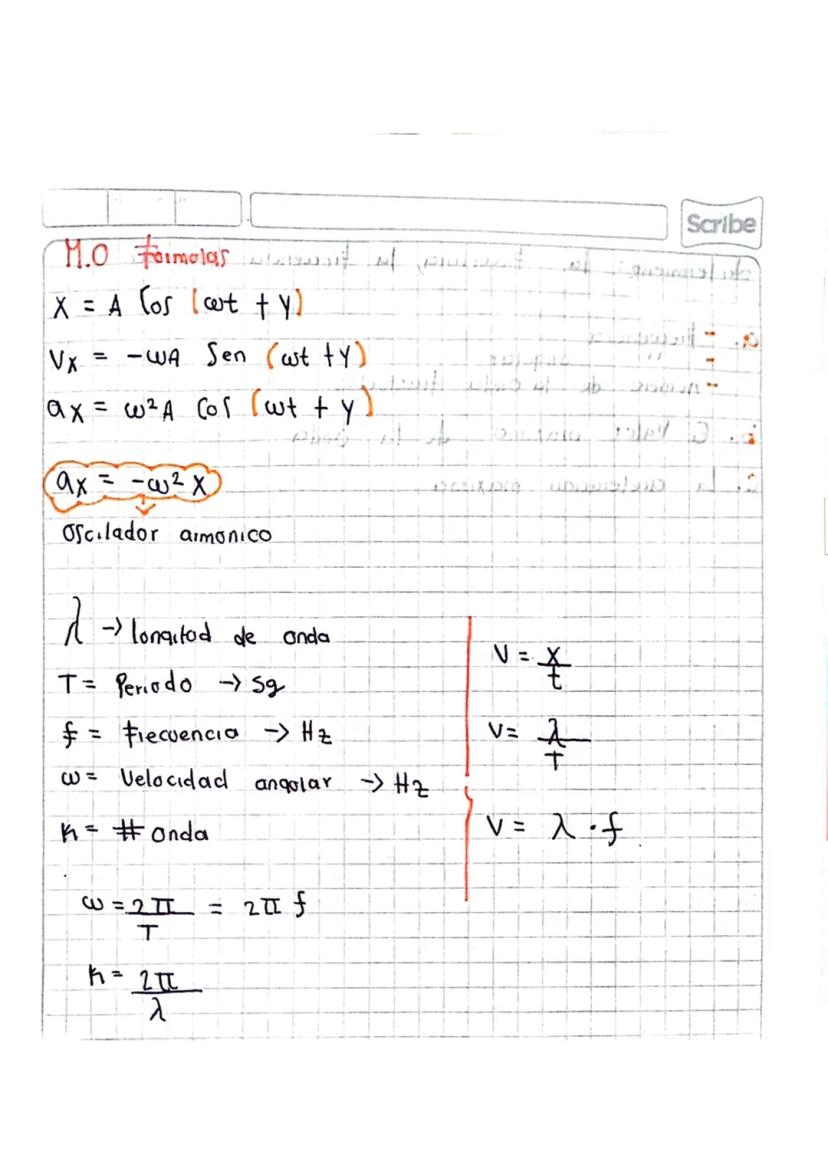 Scribe
M.O Formolas
X = A Cos (ωt + y)
Vx = -ωA Sen (ωt + y)
ax = ω²A Cos (ωt + y)
ax = -ω² x
Oscilador armonico
λ → longitod de onda
T = Periodo → sg
f = frecuencia → Hz
ω = Velocidad angolar → Hz
K = # onda
ω = 2π/T = 2π f
K = 2π/λ
V = x/t
V = λ/T
V = λ · f